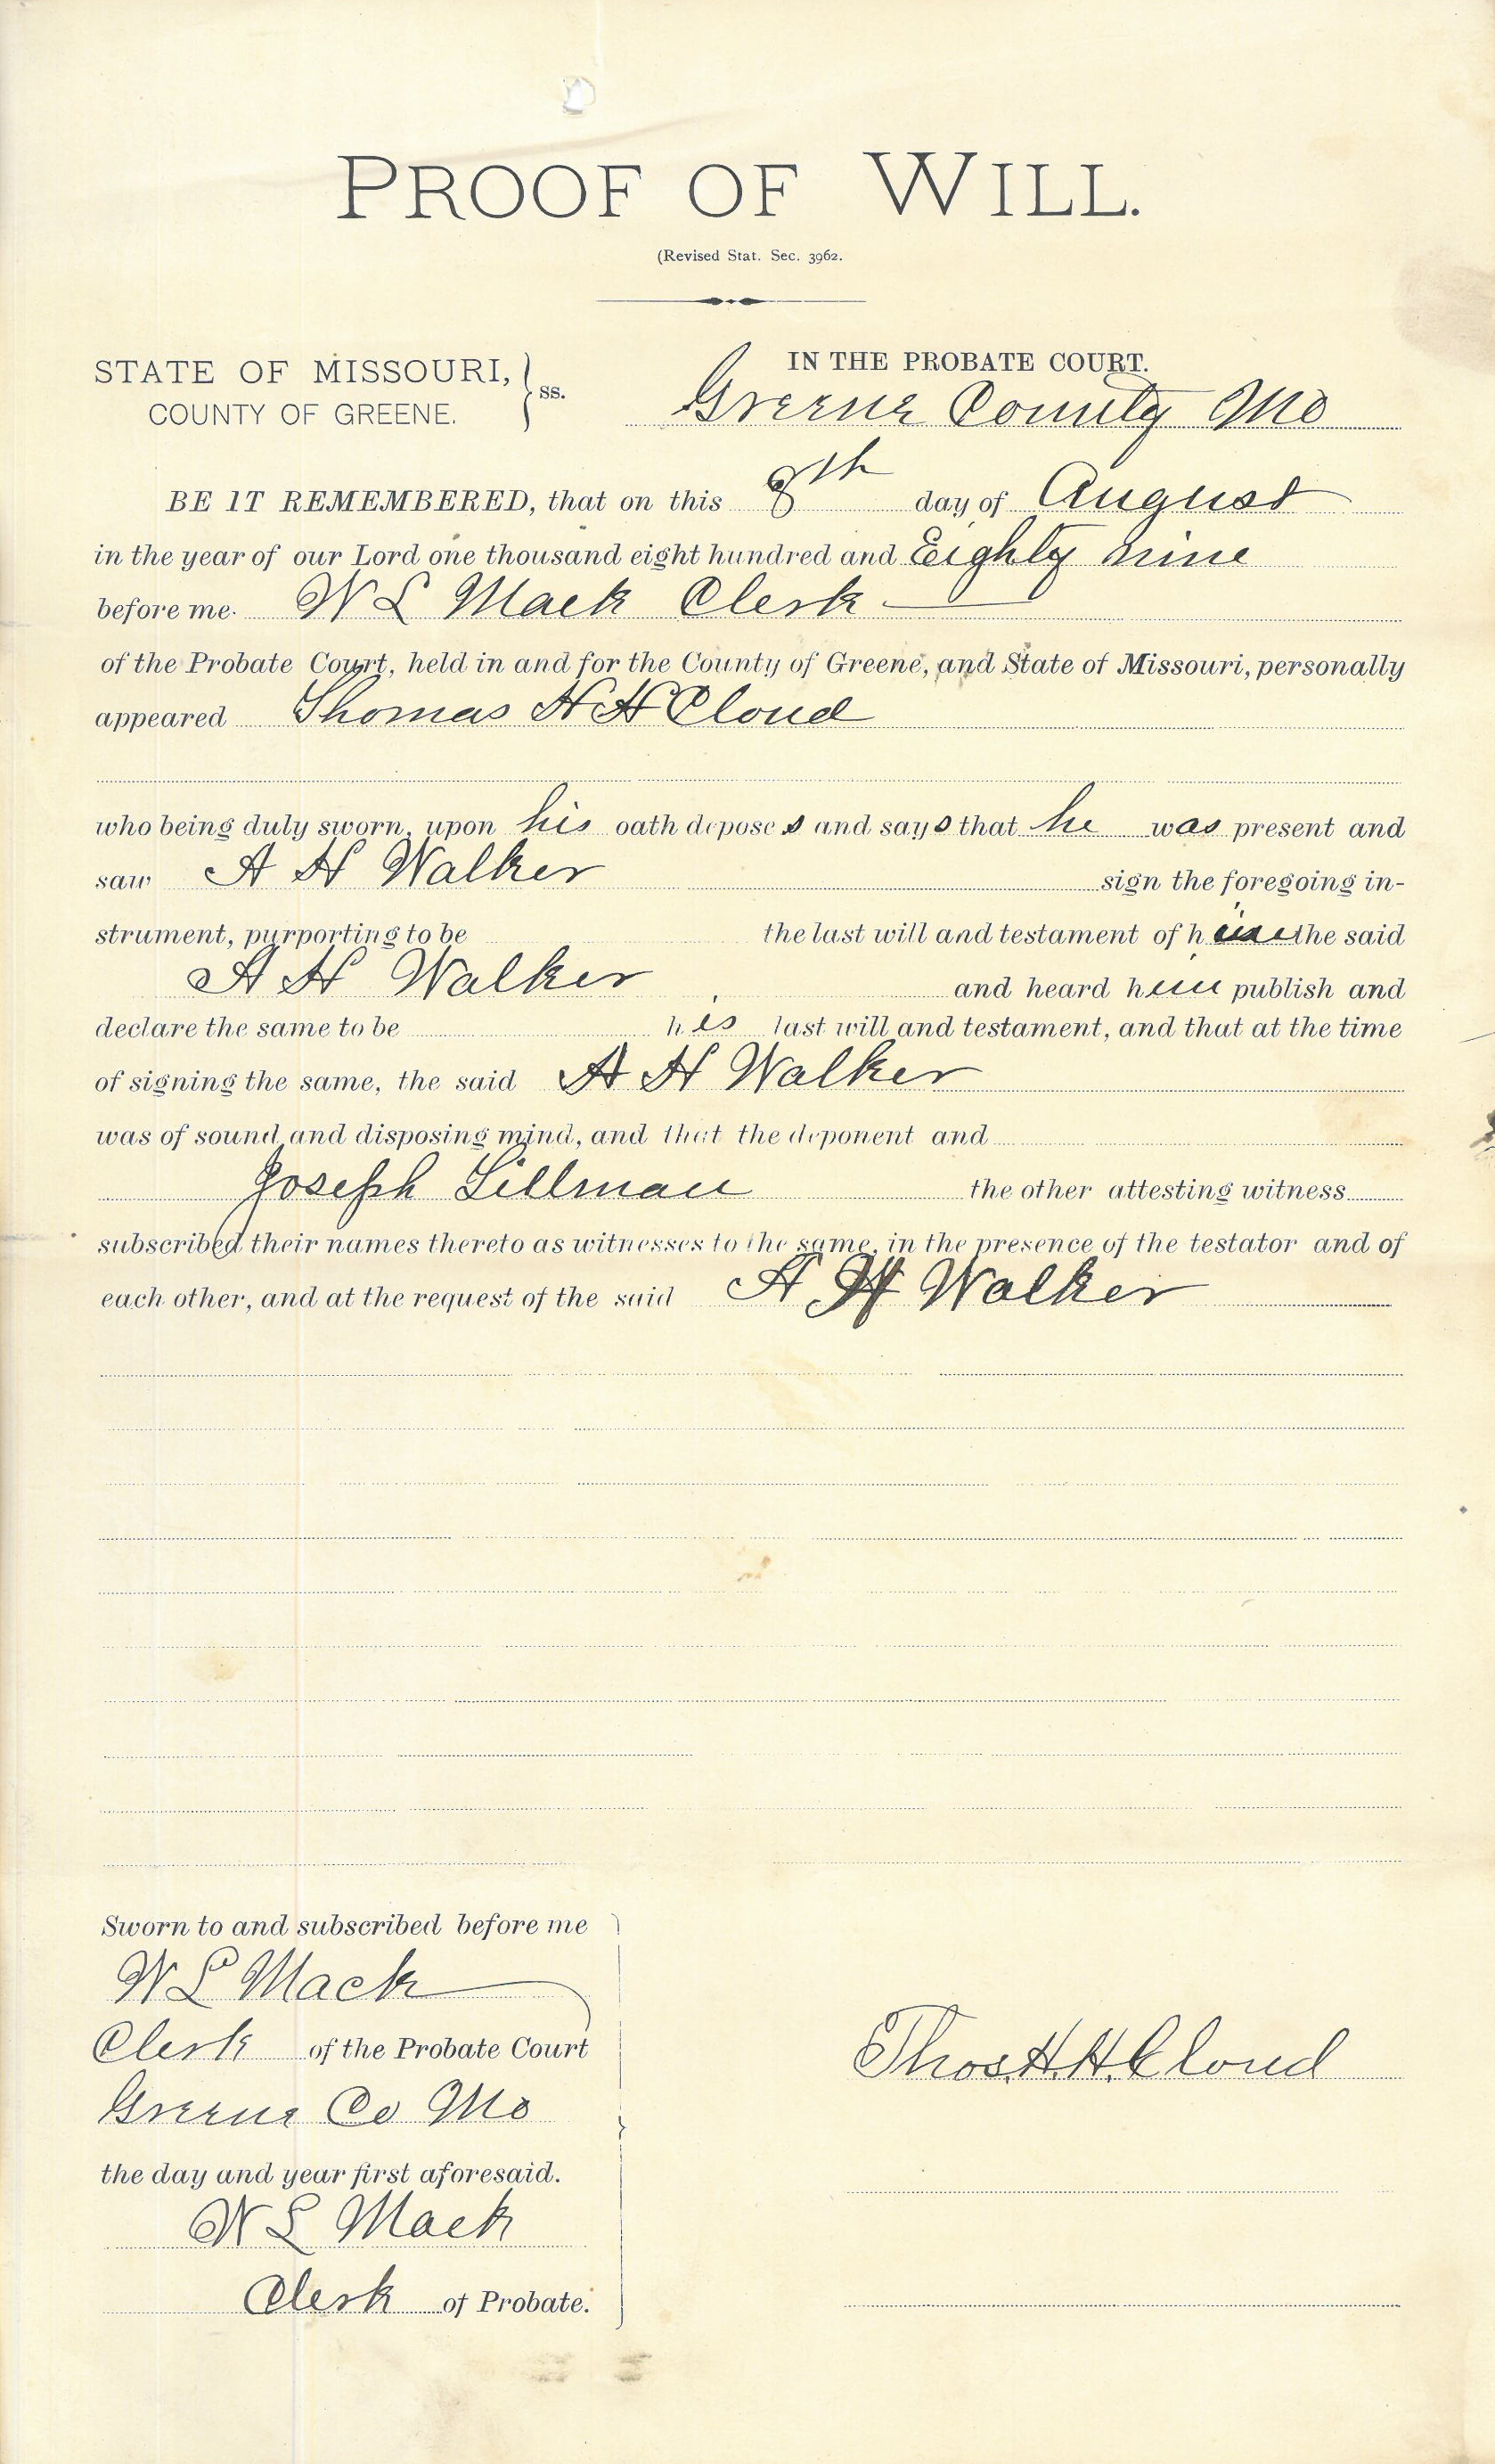 PROOF OF WILL.
(Revised Stat. Sec. 3962.
STATE OF MISSOURI, } ss.
COUNTY OF GREENE.
IN THE PROBATE COURT.
Greene County Mo
BE IT REMEMBERED, that on this 8th day of August
in the year of our Lord one thousand eight hundred and Eighty nine
before me. W L Mack Clerk
of the Probate Court, held in and for the County of Greene, and State of Missouri, personally
appeared Thomas H H Cloud
who being duly sworn, upon his oath deposes and says that he was present and
saw A H Walker sign the foregoing in-
strument, purporting to be the last will and testament of him the said
A H Walker and heard him publish and
declare the same to be his last will and testament, and that at the time
of signing the same, the said A H Walker
was of sound and disposing mind, and that the deponent and
Joseph the other attesting witness
subscribed their names thereto as witnesses to the same, in the presence of the testator and of
each other, and at the request of the said A H Walker
Sworn to and subscribed before me
W L Mack
Clerk of the Probate Court
Greene Co Mo
the day and year first aforesaid.
W L Mack
Clerk of Probate.
Thos. H. H. Cloud